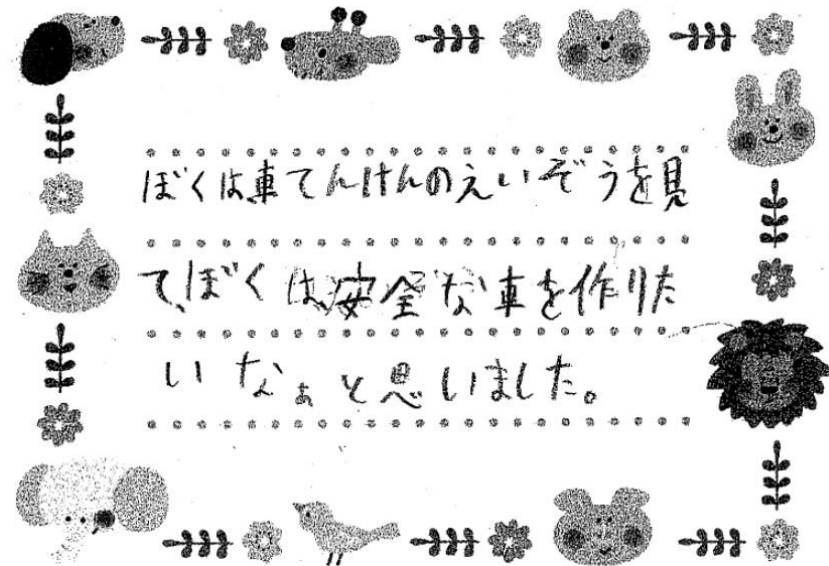 ぼくは、車てんけんのえいぞうを見
て、ぼくは、安全な車を作りた
いなぁと思いました。